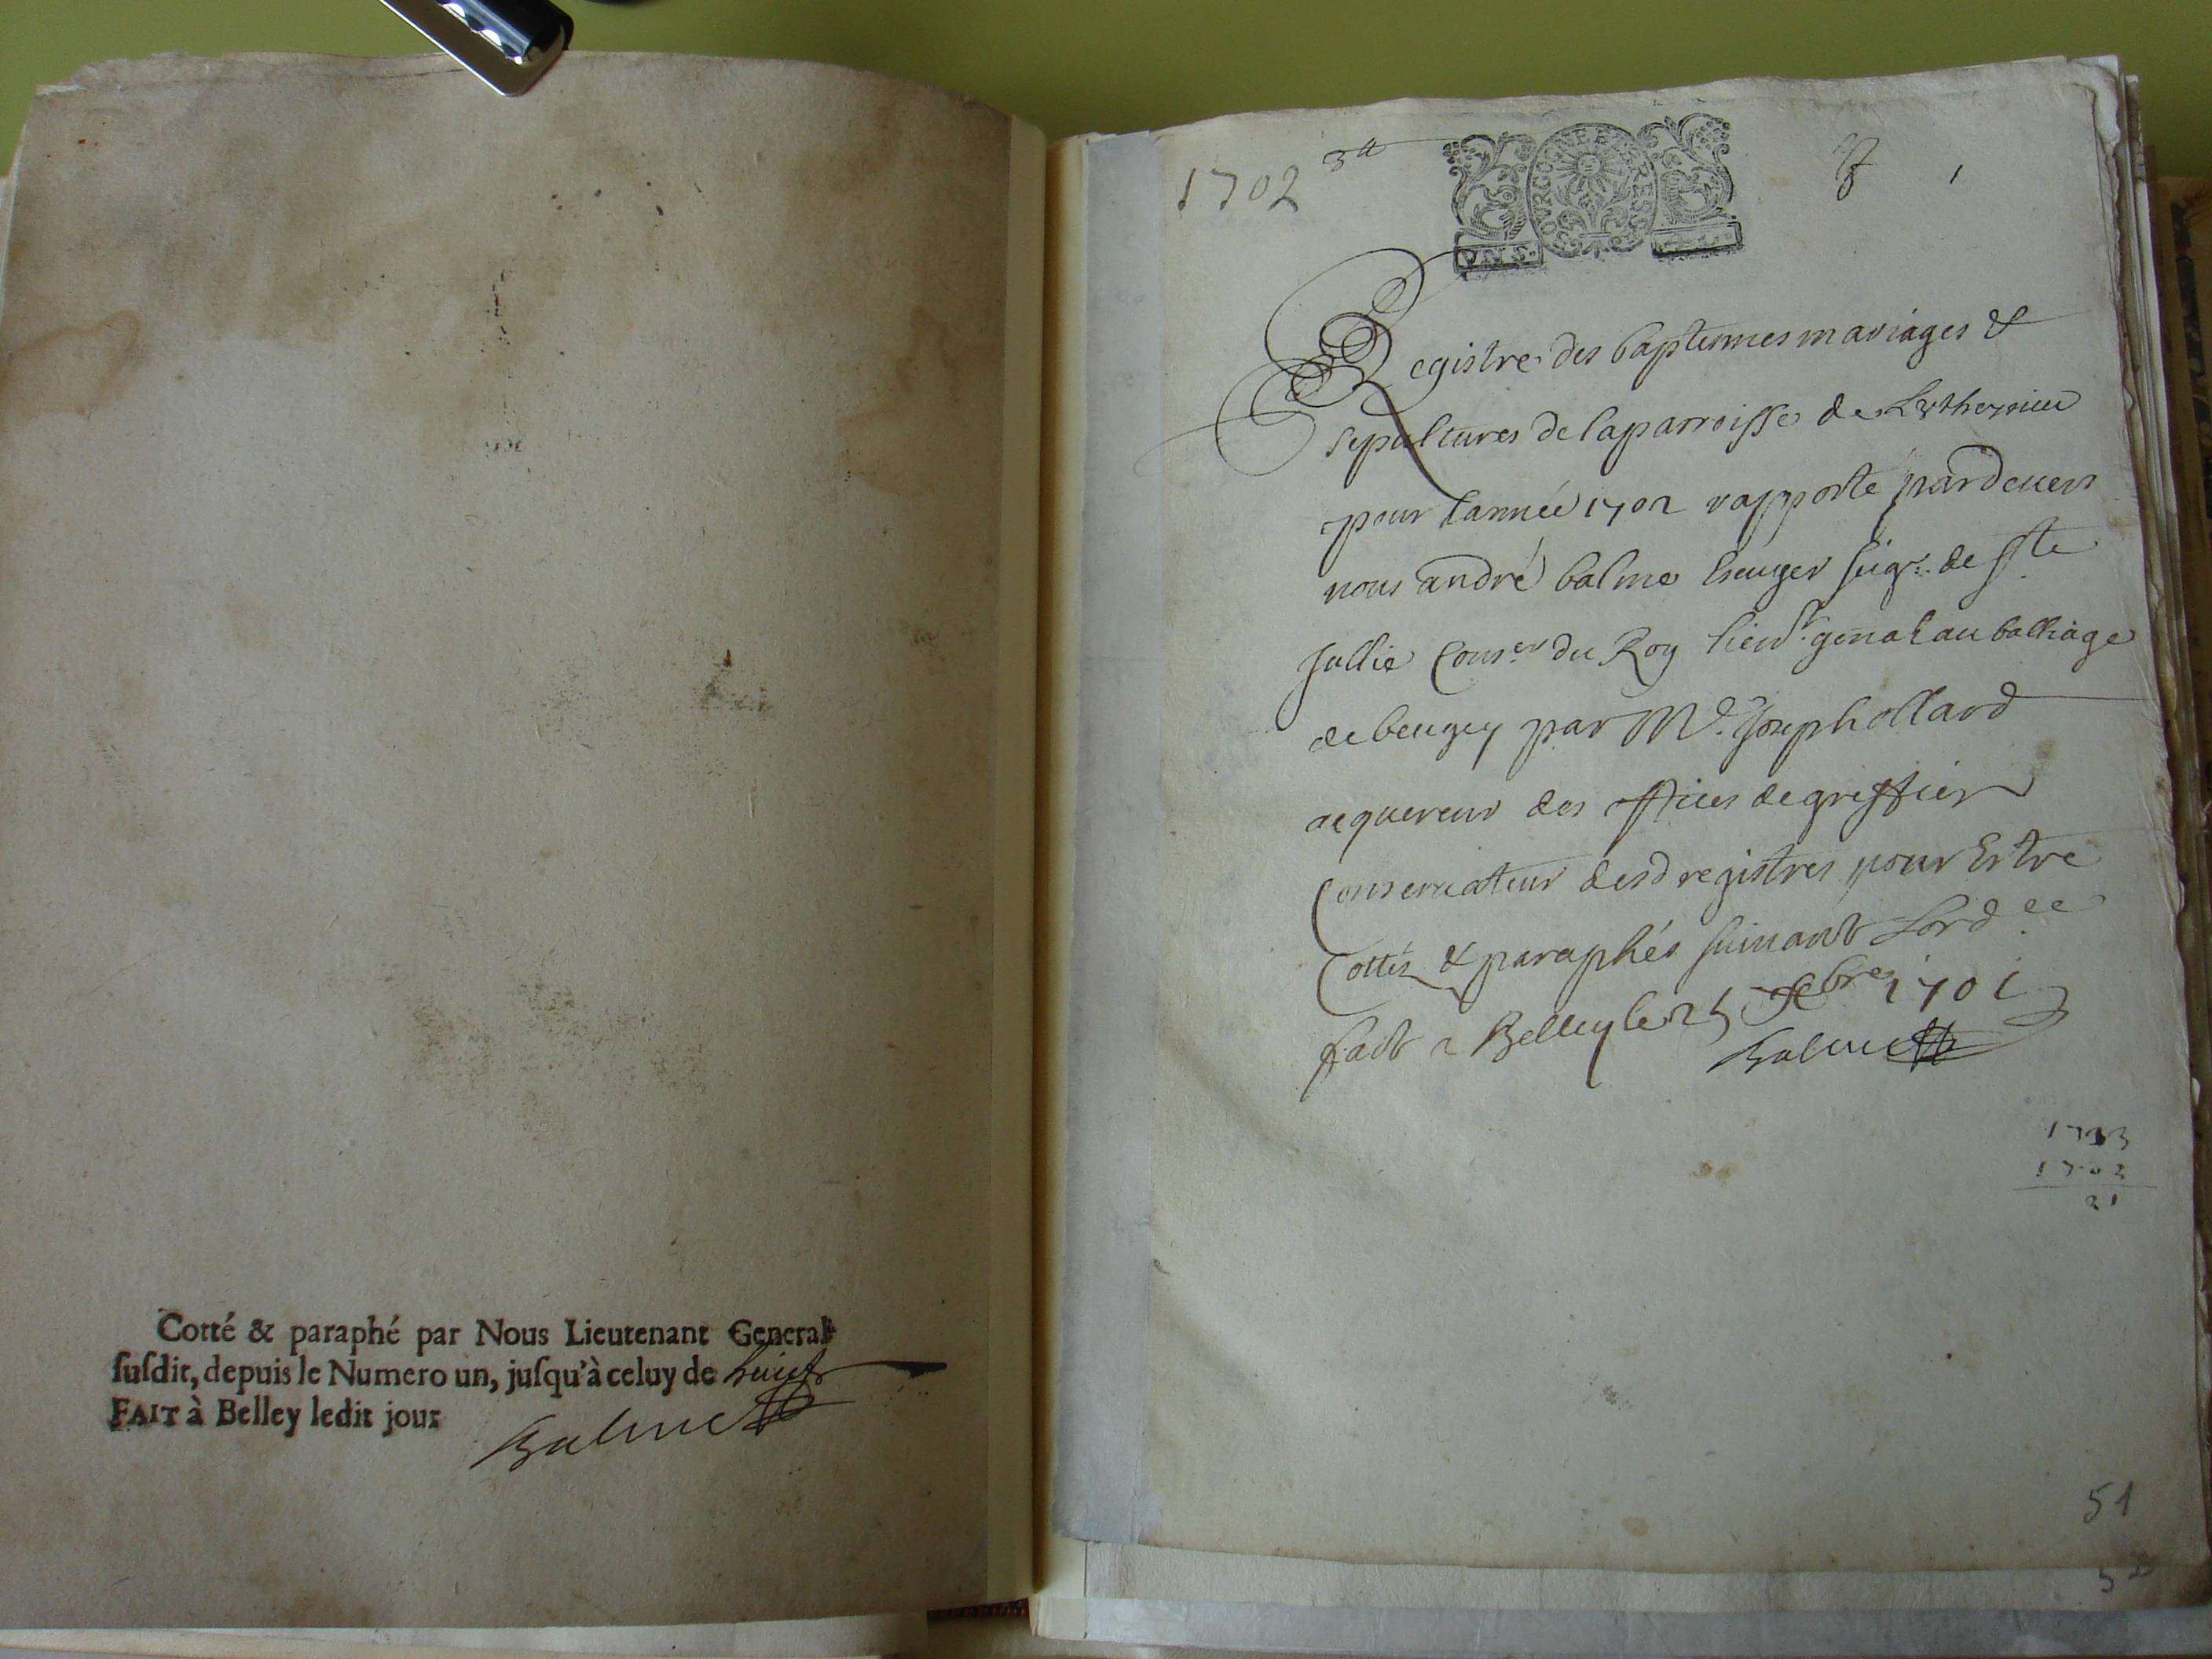 Cotté & paraphé par Nous Lieutenant General
suſdit, depuis le Numero un, juſqu'à celuy de huict
FAIT à Belley ledit jour
Balme
1702
1
BOVRGOGNE ET BRESSE
Registre des baptemmes mariages &
sepultures de la parroisse de Lutheysieu
pour l'année 1702 rapporté pardevers
nous andré balme Escuyer seigr. de Ste
Jullie Conser du Roy lieut. gnal au balliage
de beugey par Me. Joseph ollard
acquereur des offices de greffier
Conservateur desd registres pour Estre
Cottés & paraphés suivant Lordce
fait a Belley le 25 xbre 1701
Balme
1723
1702
21
51
52